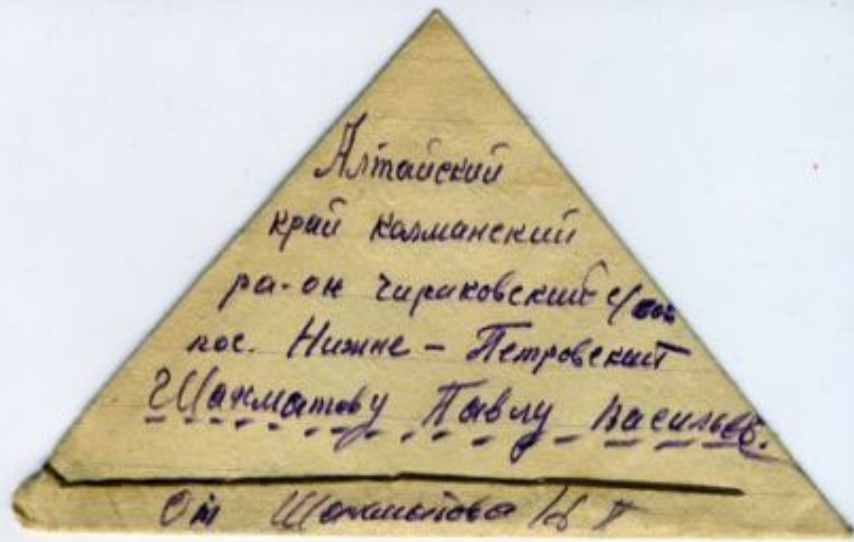 Алтайский
край калманский
ра-он чириковский с/сов
пос. Нижне - Петровский
Шахматову Павлу Васильев.
От Шахматова П